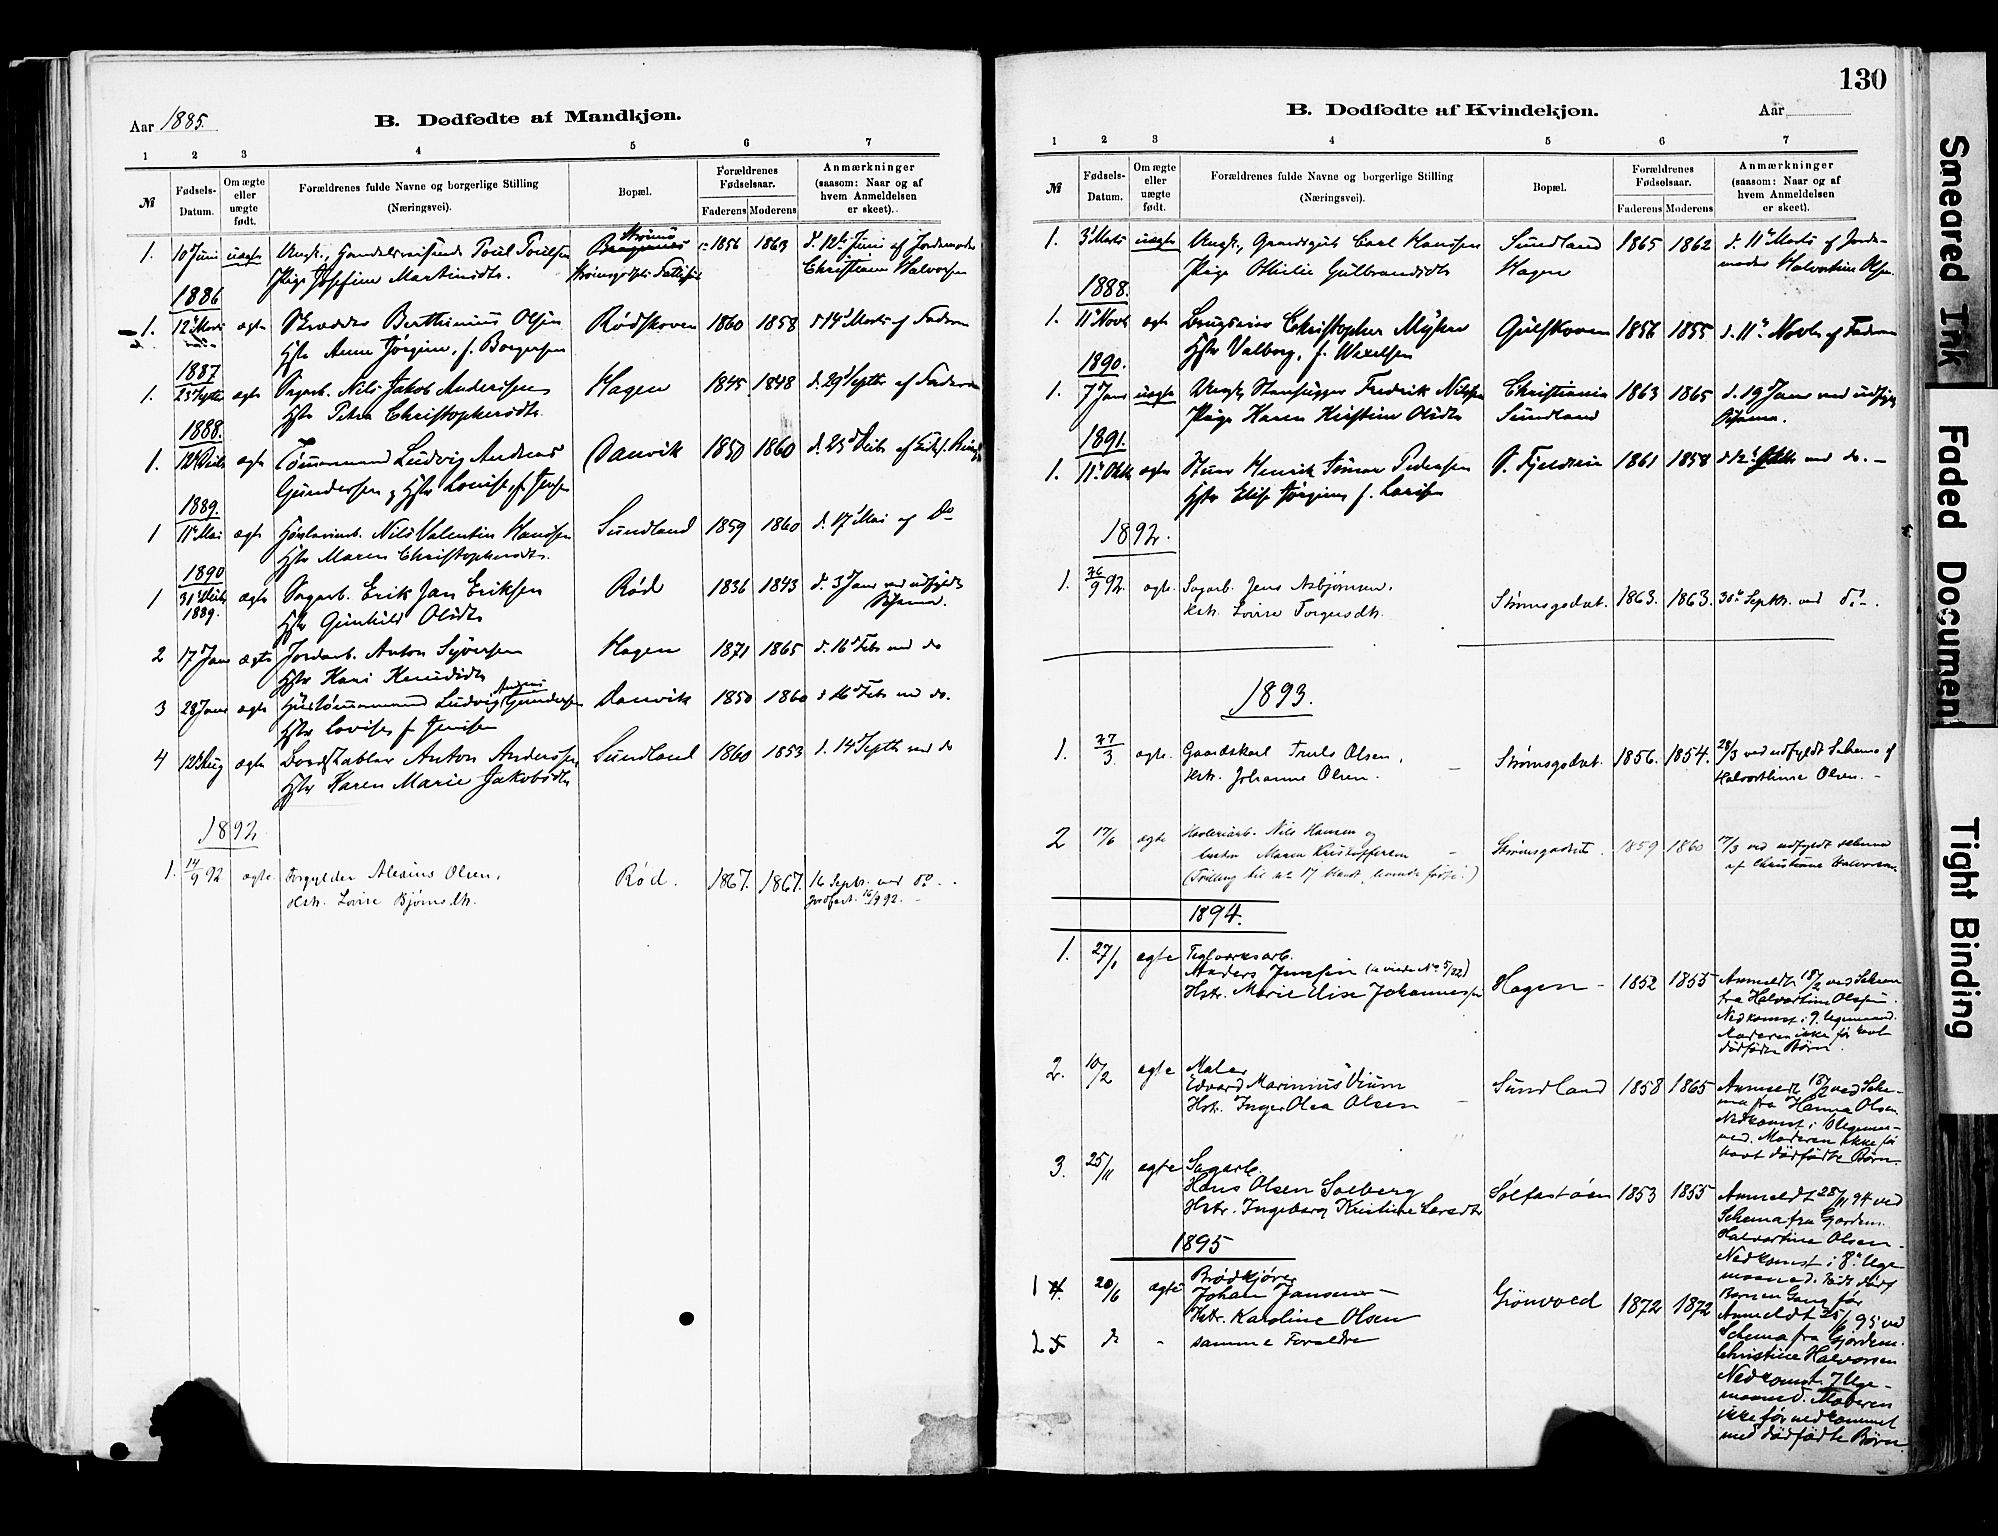 Aar 1885.
B. Dødfødte af Mandkjøn.
1 2 3 4 5 6 7
№
Fødsels-Datum.
Om ægte eller uægte født.
Forældrenes fulde Navne og borgerlige Stilling
(Næringsvei).
Bopæl.
Forældrenes Fødselsaar.
Faderens Moderens
Anmærkninger
(saasom: Naar og af
hvem Anmeldelsen
er skeet).
1. 10 Juni uægte Ungk., Poul Poulsen Strømsø 1856 1863 d. 12te Juni af Jordemoder
Pige Josefine Martinsdt. Christiane Halvorsen
1886
1. 12 Marts ægte Skrædder Berthinius Olsen Rødskoven 1860 1858 d 14 Marts af Faderen
Hstr Anne Jørgine, f. Borgersen
1887
1. 23 Septbr ægte Sagarb. Nils Jakob Anderssen Hagen 1845 1848 d. 29 Septbr af Faderen
Hstr Petra Christophersdtr.
1888.
1. 12 Decbr ægte Tømmermand Ludvig Andreas Danvik 1850 1860
Gundersen & Hstr Louise, f. Jensen
1889.
1 11 Mai ægte Nils Valentin Hanssen Sundland 1859 1860 d. 17 Mai af Do
Hstr Maren Christophersdtr.
1890
1 31 Decbr 1889. ægte Sagarb. Erik Jan Eriksen Rød 1836 1843 d. 3 Janr ved udfyldt
Hstr Gunhild Olsdtr Schema.
2 17 Janr ægte Jordarb. Anton Syversen Hagen 1871 1865 d. 16 Febr ved do
Hstr Kari Knudsdtr
3 28 Janr ægte Hustømmermand Ludvig Andreas Gundersen Danvik 1850 1860 d 16 Febr ved do.
Hstr Lovise f. Jensen
4 12 Aug ægte Bordstabler Anton Anderssen Sundland 1860 1853 d. 14 Septbr ved do
Hstr Karen Marie Jakobsdtr
1892
1. 14/9 92 ægte Forgylder Alexius Olsen, Rød. 1867. 1867. 16 Septr. ved do.
Hstr. Lovise Bjørnsdtr. Jordfæst. 16/9 92.
130
B. Dødfødte af Kvindekjøn.
Aar
1 2 3 4 5 6 7
№
Fødsels-Datum.
Om ægte eller uægte født.
Forældrenes fulde Navne og borgerlige Stilling
(Næringsvei).
Bopæl.
Forældrenes Fødselsaar.
Faderens Moderens
Anmærkninger
(saasom: Naar og af
hvem Anmeldelsen
er skeet).
1. 3 Marts uægte Ungk., Gaardsgut Carl Hanssen Sundland 1865 1862 d. 11 Marts af Jorde-
Pige Othilie Gulbrandsdtr Hagen moder Halvorline Olsen.
1888.
1. 11 Novbr ægte Brugseier Christopher Myhre Gulskoven 1856 1855 d. 11 Novbr af Faderen
Hstr Valborg, f. Wexelsen
1890.
1. 7 Janr uægte Ungk. Stenhugger Fredrik Nilssen Christiania 1863 1865 d. 19 Janr ved udfyldt
Pige Karen Kirstine Olsdtr Sundland Schema.
1891.
1. 11 Oktbr ægte Henrik Pedersen S. Fjeldveien 1861 1858 ved do. -
Hstr Elise Jørgine f. Larsen
1892.
1. 26/9 92 ægte. Sagarb. Jens Asbjørnsen, Strømsgodset. 1863. 1863. 30 Septbr. ved do.
Hstr. Lovise Torgersdtr.
1893.
1. 27/3 ægte. Gaardskarl Truls Olsen, Strømsgodset. 1856. 1854. 28/3 ved udfyldt Schema af
Hstr. Johanne Olsen. Halvorthine Olsen. -
2 17/6 ægte Høvleriarb. Nils Hansen og Strømsgodset. 1859 1860 ved udfyldt schema
hustru Maren Kristoffersen af Christiane Halvorsen
(Tvilling til No 17 blandt levende fødte.)
1894.
1. 27/1 ægte Teglværksarb.
Anders Jensen Hagen - 1852 1855 Anmeldt 18/2 ved Schema
Hstr. Marie Elise Johannessen fra Halvorthine Olsen.
Nedkomst i 9. Ugemaaned.
Moderen ikke før havt
dødfødte Børn.
2. 10/2 ægte Maler
Edvard Marinius Vium Sundland 1858 1865 Anmeldt 18/2 ved Sche-
Hstr. Inger Olea Olsen ma fra Hanna Olsen
Nedkomst i Ugemaa-
ned. Moderen ikke før
havt dødfødte Børn.
3. 25/11 ægte Sagarb.
Hans Olsen Solberg Sølfastøen 1853 1855 Anmeldt 28/11 94 ved
Hstr. Ingeborg Kristine Larsdtr Schema fra Gjordem.
Halvorthine Olsen -
Nedkomst i 8. Uge
maaned. Født dødt
Barn en Gang før
1895
1 4. 20/6 ægte Brødkjører
Johan Jansen - Grønvold 1872 1872 Anmeldt 25/6 95 ved
Hstr. Karoline Olsen Schema fra Gjordem.
2 5 do " samme Forældre Christine Halvorsen
Nedkomst. 7 Uge-
maaned. Moderen
ikke før nedkommet
med dødfødte Børn.
Smeared Ink
Faded Document
Tight Binding